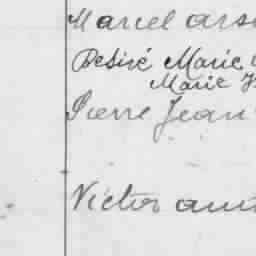 Marcel
Désiré Marie
Marie
Pierre Jean
Victor